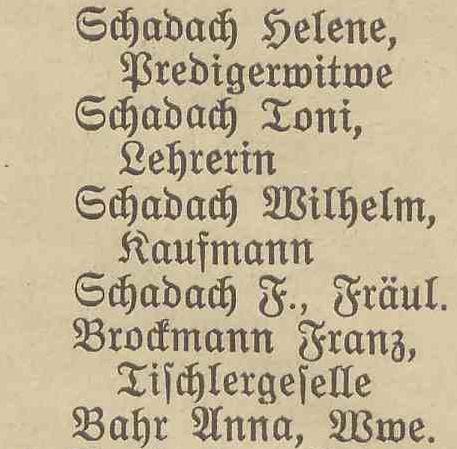 Schadach Helene,
Predigerwitwe
Schadach Toni,
Lehrerin
Schadach Wilhelm,
Kaufmann
Schadach F., Fräul.
Brockmann Franz,
Tiſchlergeſelle
Bahr Anna, Wwe.